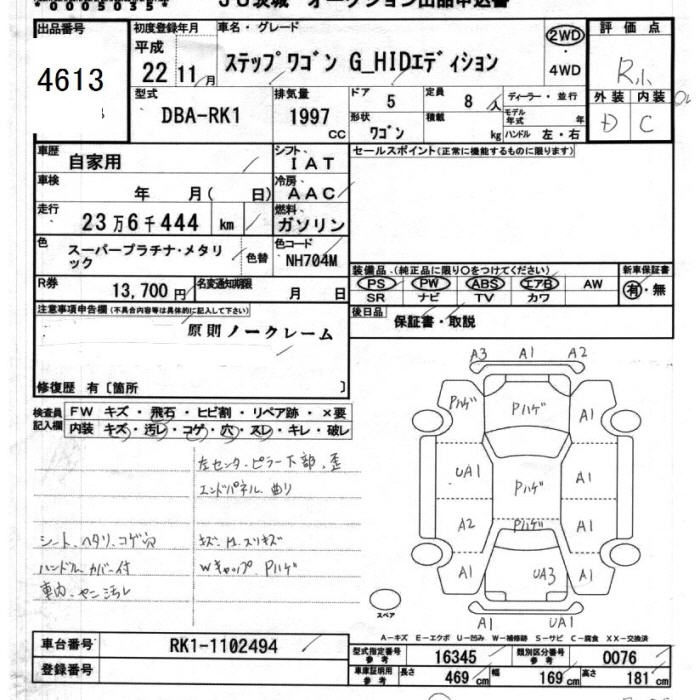 00050354 JU茨城 オークション出品申込書
出品番号 初度登録年月 車名・グレード 評価点
4613 平成 22 11月 ステップワゴン G_HIDエディション 2WD・4WD R小
型式 排気量 ドア 定員 ディーラー・並行 外装 内装
DBA-RK1 1997 CC 5 8人 モデル年式 年 D C
形状 積載
ワゴン kg ハンドル 左・右
車歴 自家用 シフト IAT セールスポイント(正常に機能するものに限ります)
車検 年 月( 日) 冷房 AAC
走行 23万6千444 km 燃料 ガソリン
色 スーパープラチナ・メタリック 色替 色コード NH704M
装備品(純正品に限り○をつけてください) 新車保証書
R券 13,700円 名変通知期限 月 日 PS PW ABS エアB AW 有・無
SR ナビ TV カワ
注意事項申告欄(不具合内容等は具体的に記入して下さい) 後日品 保証書・取説
原則ノークレーム
修復歴 有〔箇所 〕
検査員記入欄 FW キズ・飛石・ヒビ割・リペア跡・×要
内装 キズ・汚レ・コゲ・穴・スレ・キレ・破レ
左センタ.ピラー下部.歪
エンドパネル.曲り
シート.ヘタリ.コゲ穴 キズ.H.スリキズ
ハンドル.カバー付 Wキャップ.Pハゲ
車内.ヤニ汚レ
A3 A1 A2
Pハゲ Pハゲ A1
UA1 Pハゲ A1
A2 Pハゲ A1
A1 UA3 A1
A1 UA1
スペア
A-キズ E-エクボ U-凹み W-補修跡 S-サビ C-腐食 XX-交換済
車台番号 RK1-1102494 型式指定番号 参考 16345 類別区分番号 参考 0076
登録番号 車庫証明用 参考 長さ 469cm 幅 169cm 高さ 181cm